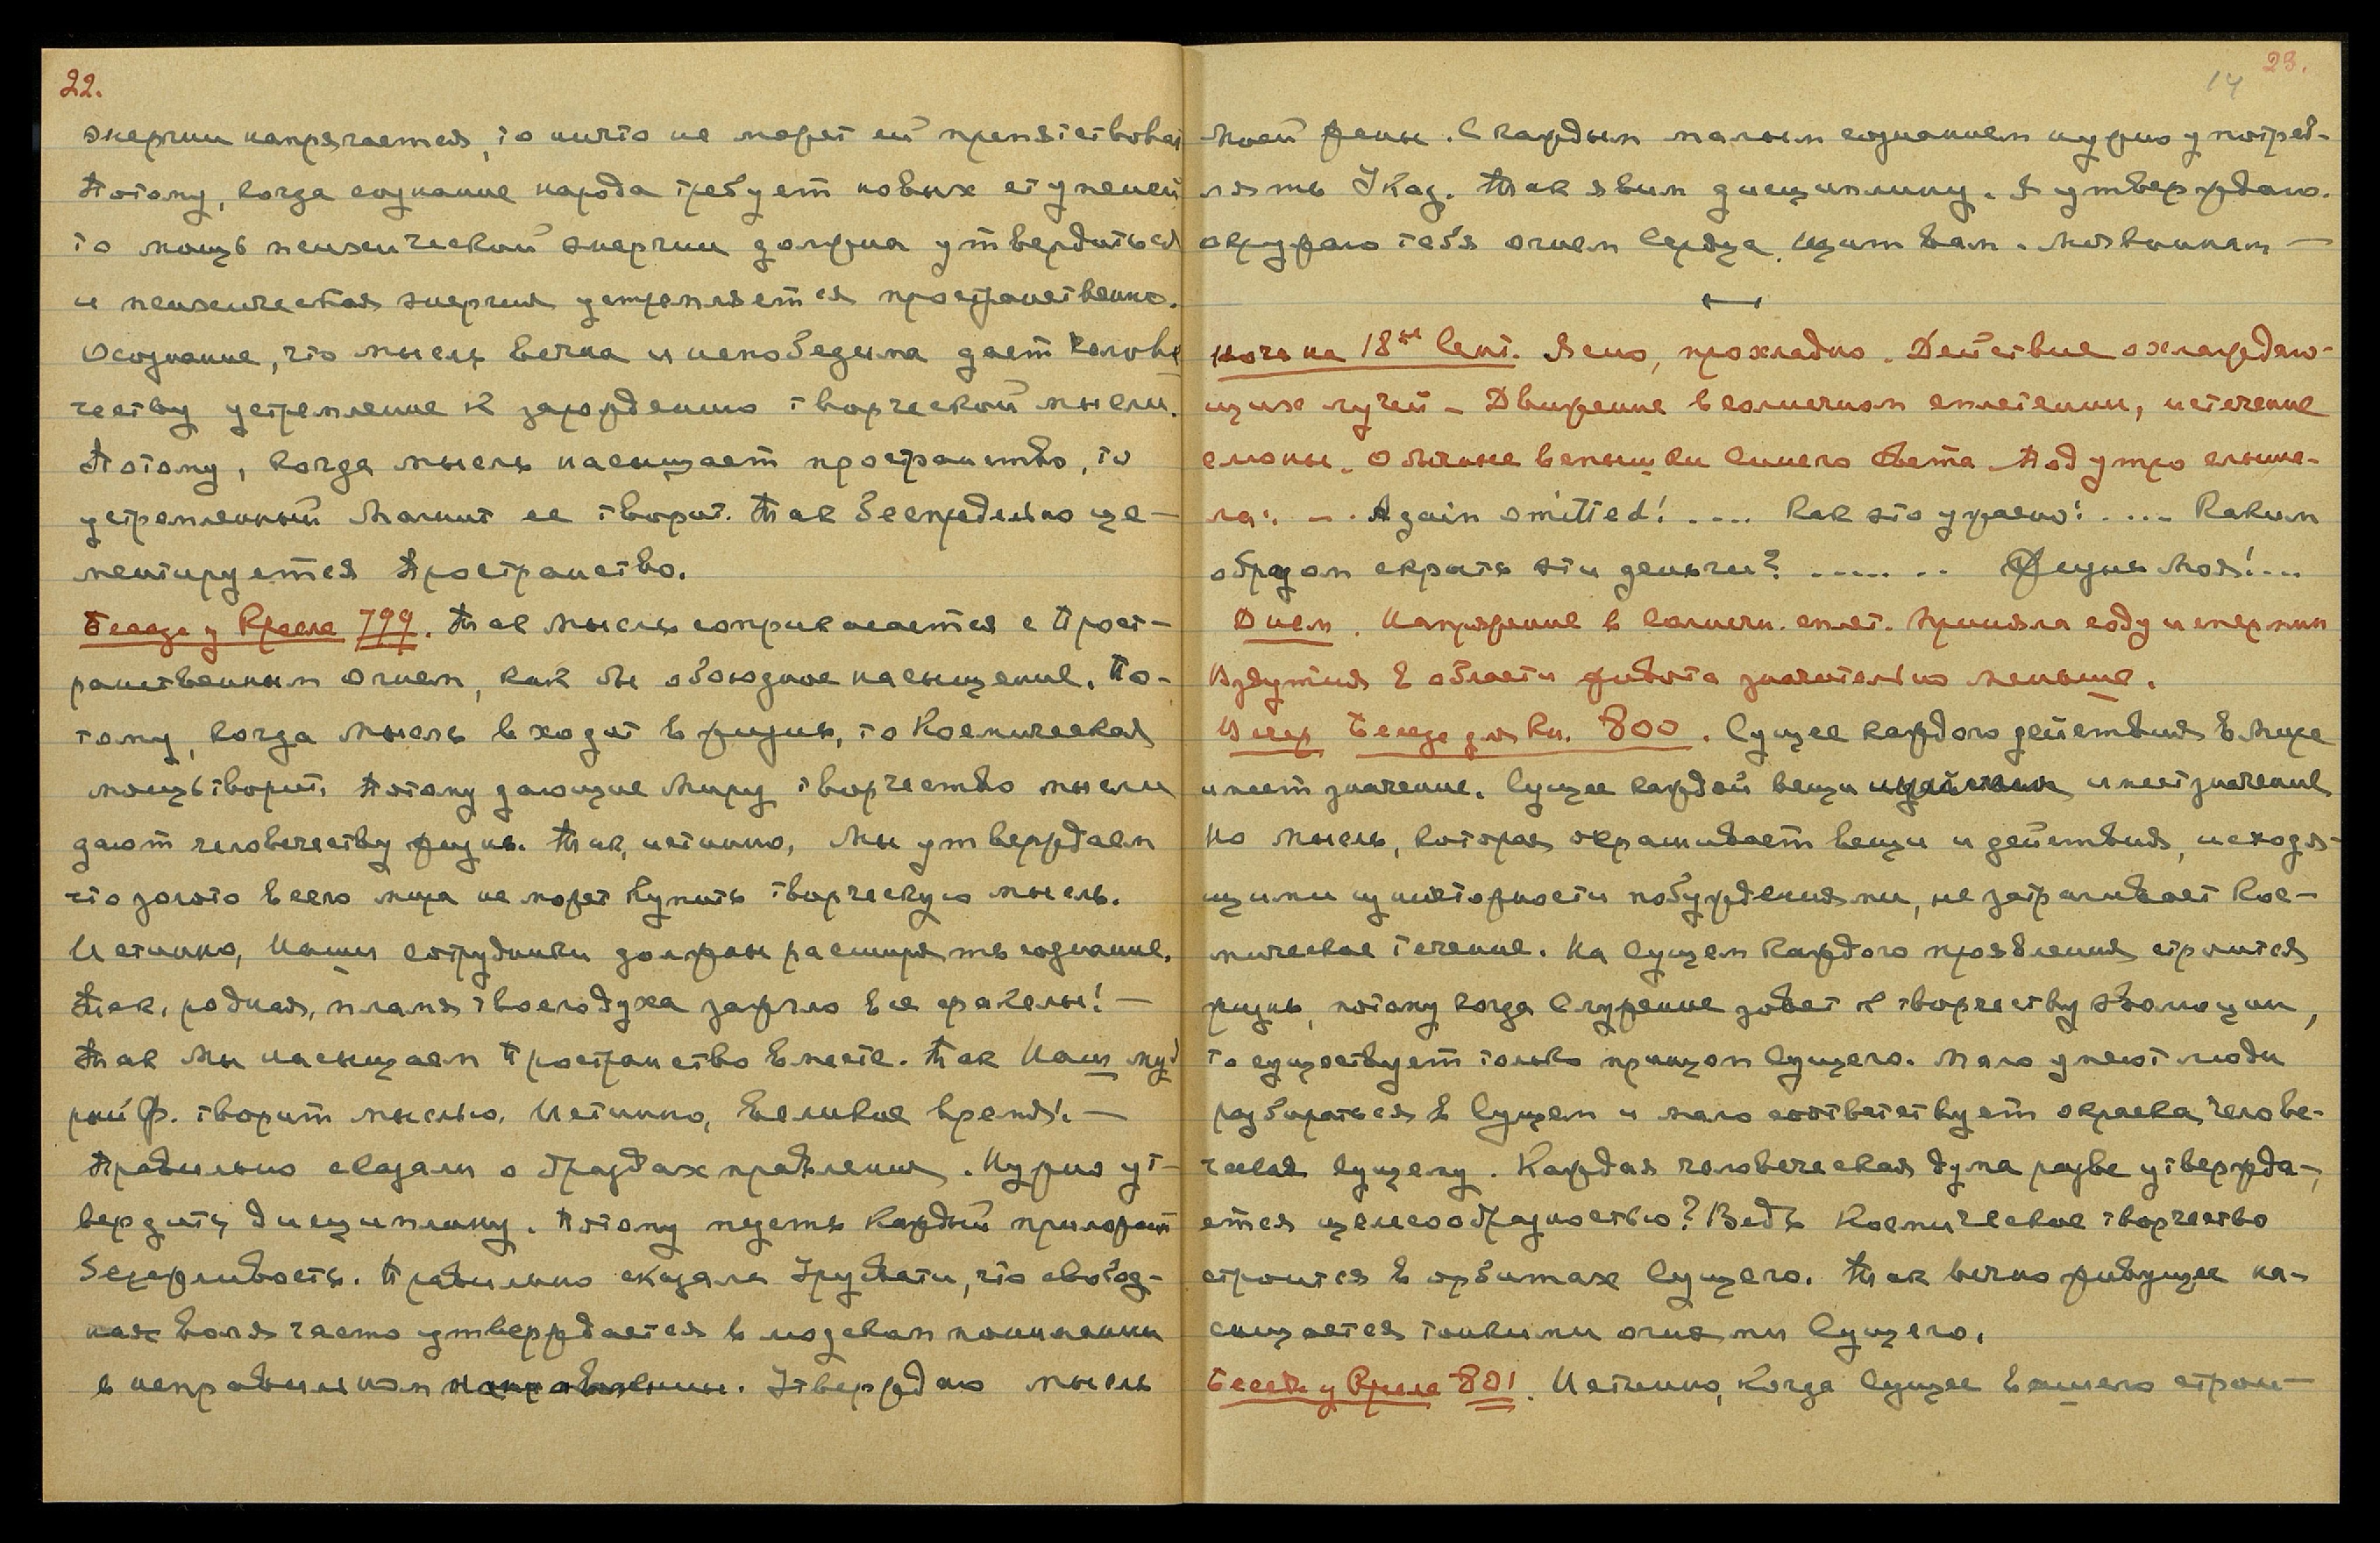 22.
энергии напрягается, то ничто не может ей препятствовать
Потому, когда сознание народа требует новых ступеней
то мощь психической энергии должна утвердиться
и психическая энергия устремляется пространственно.
Осознание, что мысль вечна и непобедима дает челове
честву устремление к зарождению творческой мысли.
Потому, когда мысль насыщает пространство, то
устремленный Магнит ее творит. Так беспредельно це-
ментируется Пространство.
Беседа у Кресла 799. Так мысль соприкасается с Прост-
ранственным Огнем, как бы обоюдное насыщение. По-
тому, когда мысль входит в жизнь, то Космическая
мощь творит. Потому дающие Миру творчество мысли
дают человечеству жизнь. Так, истинно, Мы утверждаем
что золото всего мира не может купить творческую мысль.
Истинно, Наши сотрудники должны расширять сознание.
Так, родная, пламя твоего духа зажгло все факелы! —
Так Мы насыщаем Пространство вместе. Так Наш муд
рый Ф. творит мыслью. Истинно, Великое время! —
Правильно сказали о браздах правления. Нужно ут-
вердить дисциплину. Потому пусть каждый приложит
бережливость. Правильно сказала Урувати, что свобод-
ная воля часто утверждается в людском понимании
в неправильном направлении. Утверждаю мысль
14 23.
Моей Жены. С каждым малым сознанием нужно употреб-
лять Указ. Так явим дисциплину. Я утверждаю.
окружаю тебя огнем Сердца. Щит вам. —
Ночь на 18ое Сент. Ясно, прохладно. Действие охлаждаю-
щих лучей – Движение в солнечном сплетении, истечение
слюны. Обычные вспышки синего света. Под утро слыша-
ла: - . Again omitted! .... Как это ужасно! .... Каким
образом скрыть эти деньги? ....... Жизнь Моя!...
Днем. Напряжение в солнечн. сплет. Приняла соду и
Вздутия в области живота значительно меньше.
Вечер Беседа для Кн. 800. Сущее каждого действия в Мире
имеет значение. Сущее каждой вещи и действия имеет значение
Но мысль, которая окрашивает вещи и действия, исходя-
щими из побуждениями, не затрагивает Кос-
мическое течение. На Сущем каждого проявления строится
жизнь, потому когда Служение зовет к творчеству Эволюции,
то существует только принцип Сущего. Мало умеют люди
разбираться в Сущем и мало соответствует окраска челове-
ческая Сущему. Каждая человеческая дума разве утвержда-
ется целесообразностью? Ведь Космическое творчество
строится в орбитах Сущего. Так вечно живущее на-
сыщается тонкими огнями Сущего.
Беседа у Кресла 801. Истинно, когда Сущее Вашего строи-